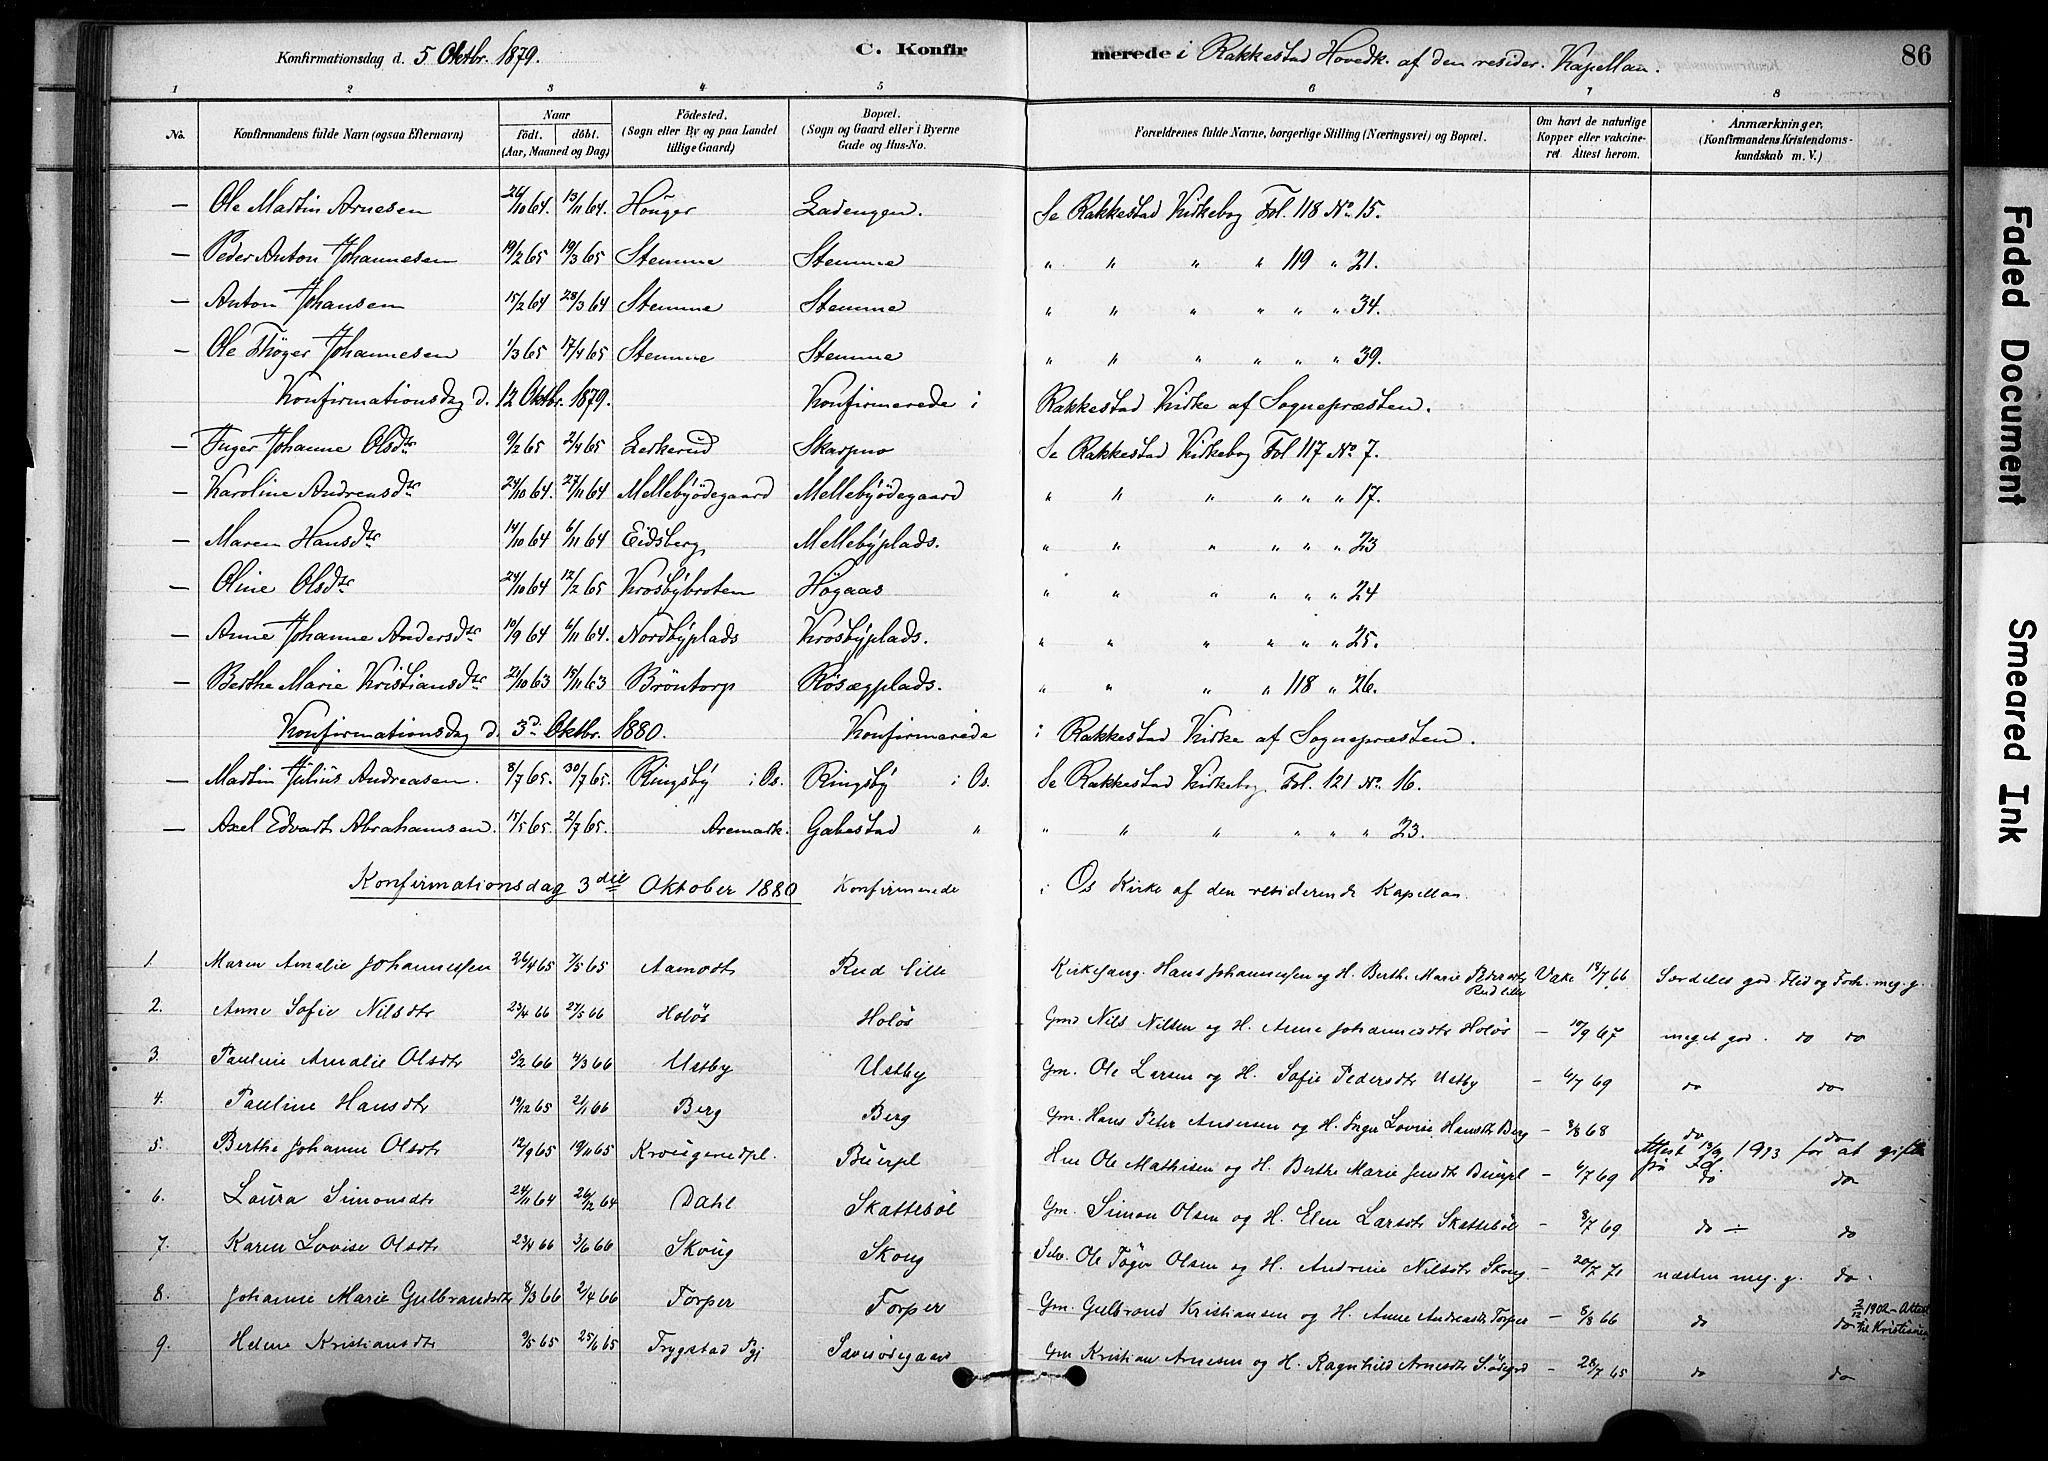 Konfirmationsdag d. 5 Oktbr. 1879. C. Konfir merede i Rakkestad Hovedk. af den resider. Kapellan. 86
1 2 3 4 5 6 7 8
No. Konfirmandens fulde Navn (ogsaa Efternavn) Naar födt. döbt. (Aar, Maaned og Dag) Födested. (Sogn eller By og paa Landet tillige Gaard) Bopæl. (Sogn og Gaard eller i Byerne Gade og Hus-No. Forældrenes fulde Navne, borgerlige Stilling (Næringsvei) og Bopæl. Om havt de naturlige Kopper eller vakcineret. Attest herom. Anmærkninger. (Konfirmandens Kristendomskundskab m. V.)
— Ole Martin Arnesen 26/10 64. 13/11 64. Houger Ladengen. Se Rakkestad Kirkebog Fol. 118 No. 15.
— Peder Anton Johannesen 19/2 65 19/3 65 Stemme Stemme " " " " 119 " 21.
— Anton Johansen 15/2 64 28/3 64 Stemme Stemme " " " " " " 34.
— Ole Thöger Johannesen 1/3 65 17/4 65 Stemme Stemme " " " " " " 39.
Konfirmationsdag d. 12 Oktbr. 1879. Konfirmerede i Rakkestad Kirke af Sognepræsten.
— Inger Johanne Olsdtr 9/2 65 2/4 65 Lerkerud Skarpno Se Rakkestad Kirkebog Fol 117 No 7.
— Karoline Andreasdtr 24/10 64. 27/11 64 Mellebyödegaard Mellebyödegaard " " " " " " 17.
— Maren Hansdtr 14/10 64 6/11 64 Eidsberg Mellebyplads. " " " " " " 23
— Oline Olsdtr 24/10 64 12/2 65 Krosbybroten Högaas " " " " " " 24
— Anne Johanne Andersdtr 10/9 64 6/11 64. Nordbyplads Krosbyplads. " " " " " " 25.
— Berthe Marie Kristiansdtr 21/10 63 15/11 63 Bröntorp Rösægplads. " " " " 118 " 26.
Konfirmationsdag d. 3d. Oktbr. 1880. Konfirmerede i Rakkestad Kirke af Sognepræsten.
— Martin Julius Andreasen. 8/7 65. 30/7 65. Ringsby i Os. Ringsby i Os. Se Rakkestad Kirkebog. Fol. 121 No. 16.
— Axel Edvart Abrahamsen. 15/5 65. 2/7 65. Aremark. Gabestad " " " " " " " 23.
Konfirmationsdag 3die Oktober 1880 Konfirmerede i Os Kirke af den residerende Kapellan.
1. Maren Amalie Johannessen 26/4 65 7/5 65 Aamodt Rud lille Kirkesang. Hans Johannessen og H. Berthe Marie Pedersdtr Rud lille Vake 18/7 66 Særdeles god. Flid og Forh. meg. g.
2. Anne Sofie Nilsdtr 23/4 66 27/5 66 Holös Holös Gmd Nils Nilsen og H. Anne Johannesdtr Holös — 10/9 67 meget god. do do
3. Pauline Amalie Olsdtr 5/2 66 4/3 66 Ustby Ustby Gm. Ole Larsen og H. Sofie Pedersdtr Ustby — 4/7 69 do do
4. Pauline Hansdtr 19/12 65 21/1 66 Berg Berg Gm. Hans Peter Andersen og H. Inger Lovise Hansdtr Berg — 8/8 68 do do
5. Berthe Johanne Olsdtr 12/9 65 19/11 65 Buerpl Hm Ole Mathisen og H. Berthe Marie Jensdtr Buerpl — 4/7 69 Attest 13/9 1913 for at gifte do do
6. Laura Simonsdtr 24/11 64 26/12 64 Dahl Skatteböl Gm. Simon Olsen og H. Elen Larsdtr Skatteböl — 8/7 69 do — do
7. Karen Lovise Olsdtr 23/4 66 3/6 66 Skoug Skoug Selv. Ole Töger Olsen og H. Andrine Nilsdtr Skoug — 20/7 71 næsten meg. g. do.
8. Johanne Marie Gulbrandsdtr 8/3 66 2/4 66 Torper Torper Gm. Gulbrand Kristiansen og H. Anne Andreasdtr Torper — 8/8 66 do do 2/12 1902 - Attest til Kristiania
9. Helene Kristiansdtr 9/5 65 25/6 65 Trygstad Pgj Gm Kristian Arnesen og H. Ragnhild Arnesdtr — 28/7 65 do do
Faded Document
Smeared Ink